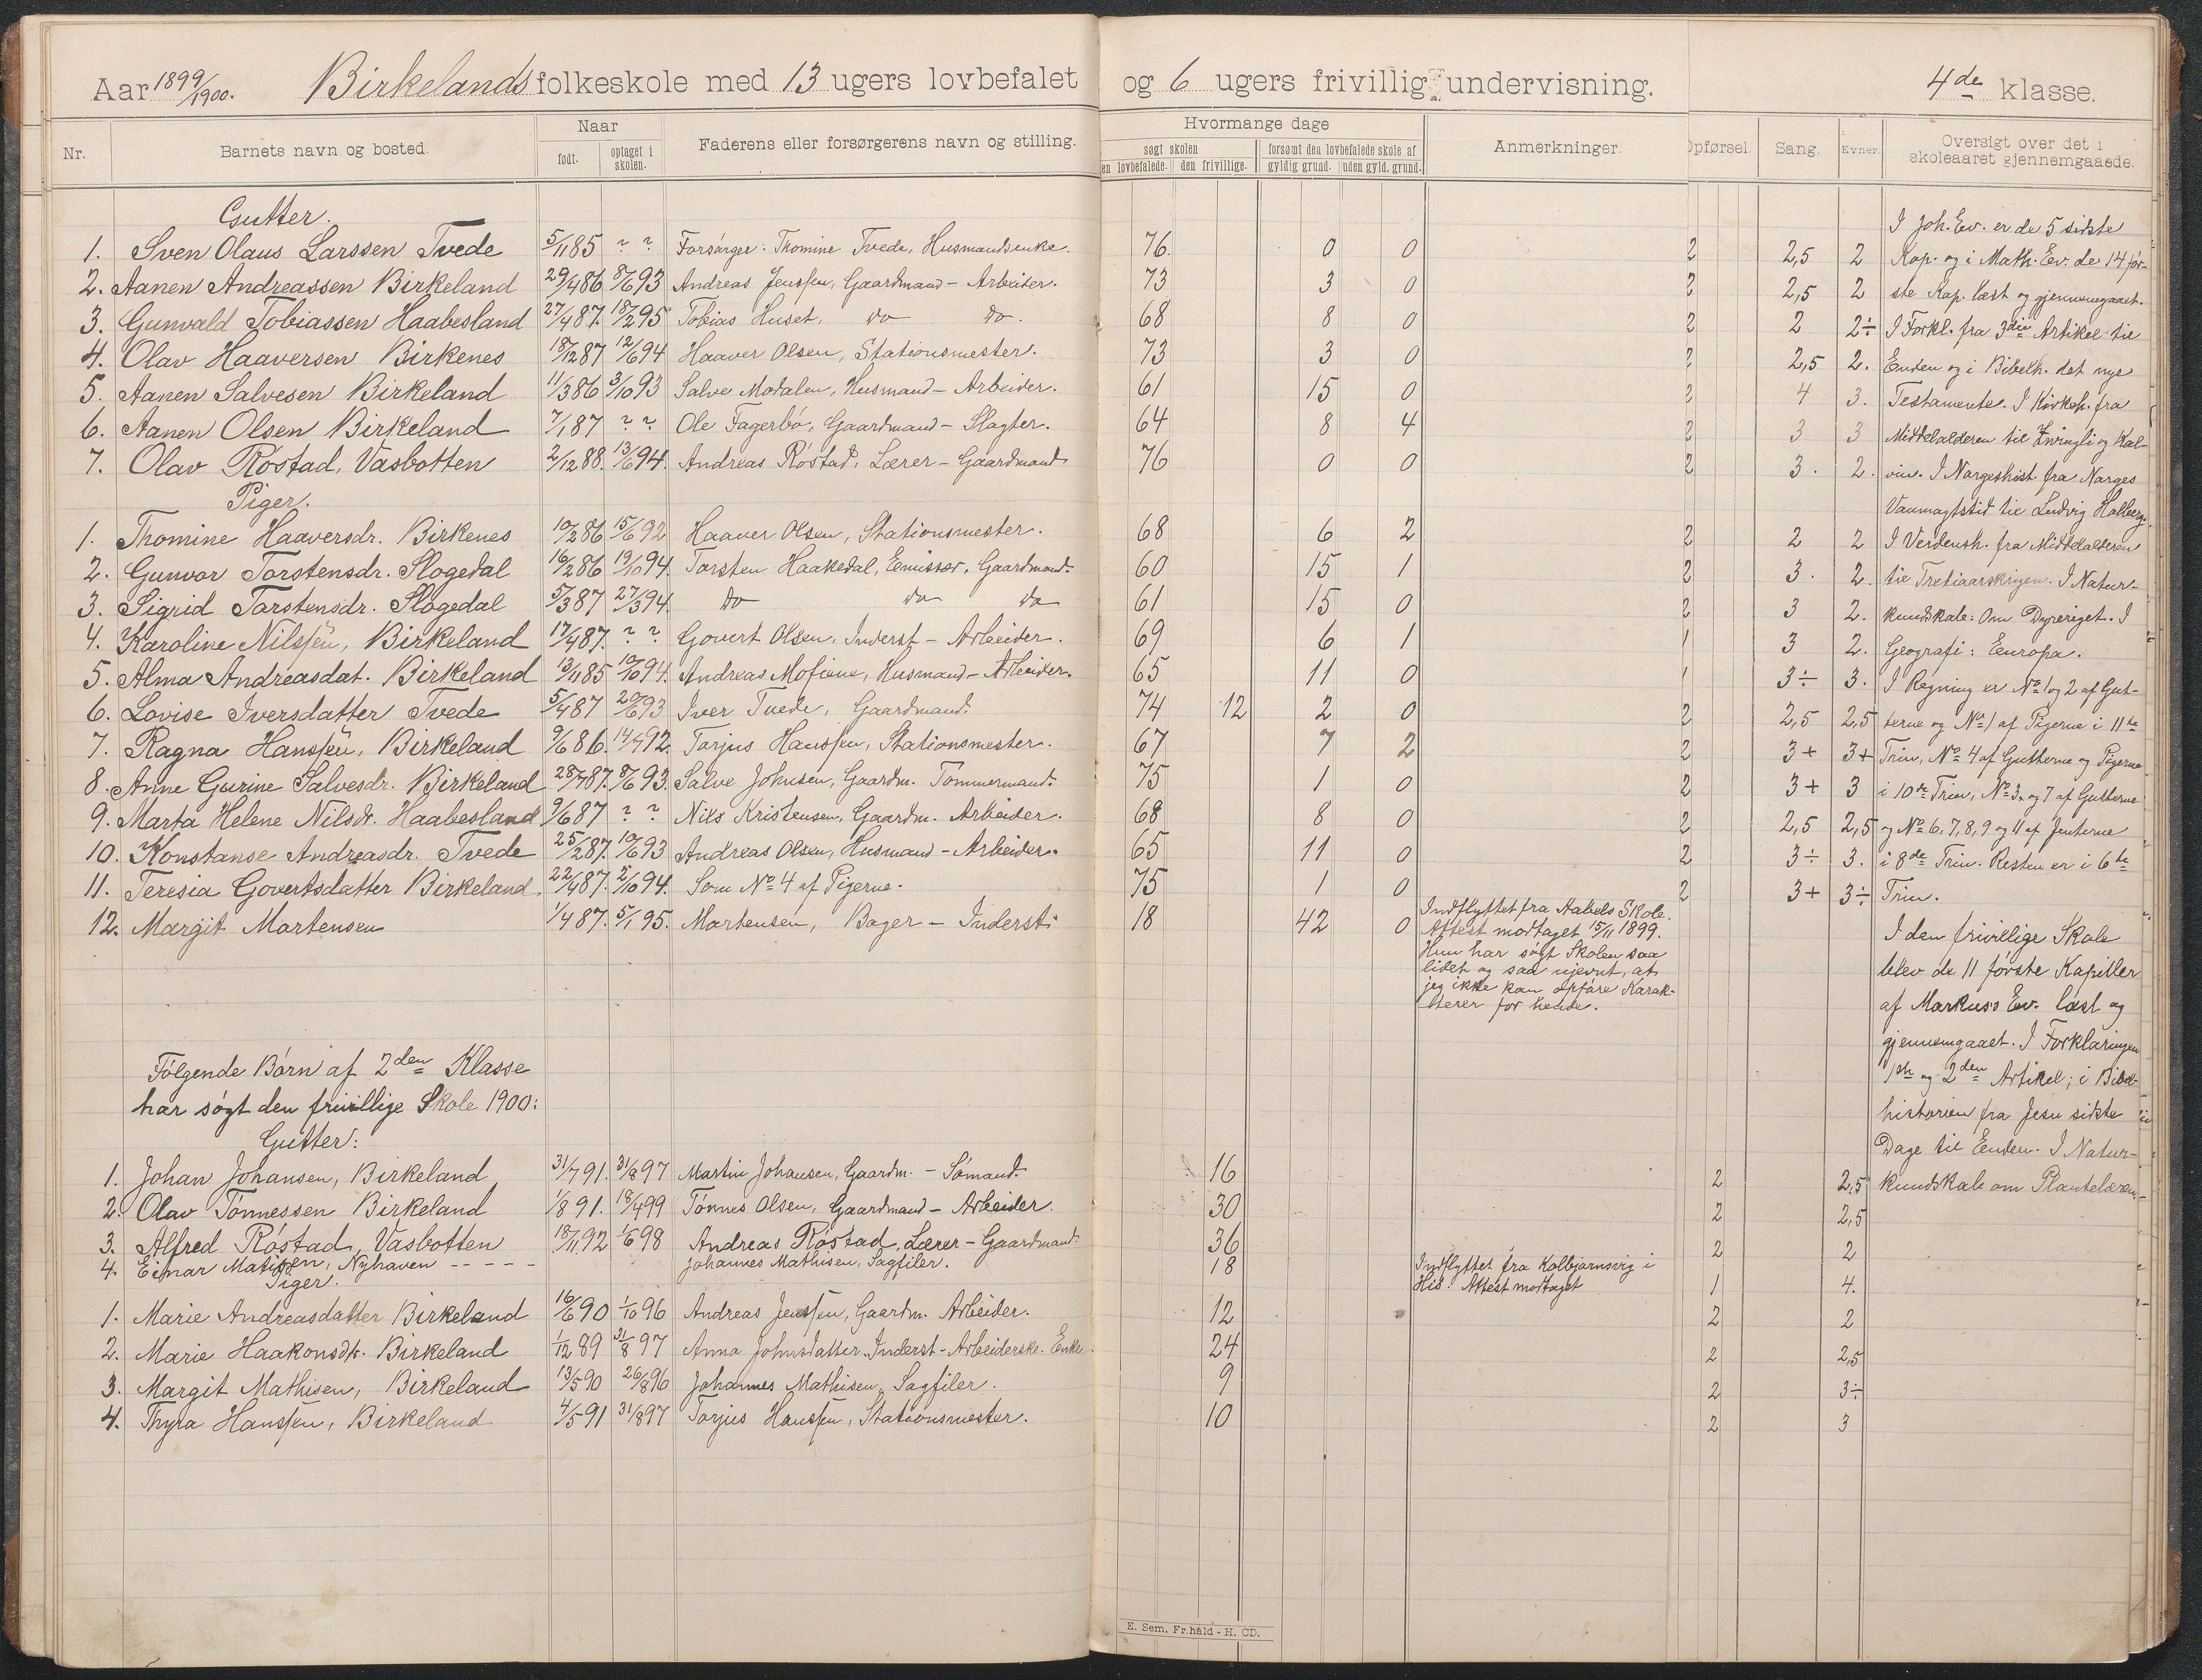 Aar 1899/1900. Birkelands folkeskole med 13 ugers lovbefalet og 6 ugers frivillig undervisning. 4de klasse.
Nr. Barnets navn og bosted. Naar født. optaget i skolen. Faderens eller forsørgerens navn og stilling. Hvormange dage søgt skolen en lovbefalede. den frivillige. forsømt den lovbefalede skole af gyldig grund. uden gyld. grund. Anmerkninger. Opførsel. Sang. Evner. Oversigt over det i skoleaaret gjennemgaaede.
Gutter.
1. Sven Olaus Larssen Tvede 5/11 85 ? ? Forsørger: Thomine Tvede, Husmandsenke. 76. 0 0 2 2,5 2
2. Aanen Andreassen Birkeland 29/4 86 8/6 93 Andreas Jenssen, Gaardmand - Arbeider. 73 3 0 2 2,5 2
3. Gunvald Tobiassen Haabesland 27/4 87. 18/2 95 Tobias Huset, do do. 68 8 0 2 2 2÷
4. Olav Haaversen Birkenes 18/12 87 12/6 94 Haaver Olsen, Stationsmester. 73 3 0 2 2,5 2.
5. Aanen Salvesen Birkeland 11/3 86 3/10 93 Salve Modalen, Husmand - Arbeider. 61 15 0 2 4 3.
6. Aanen Olsen Birkeland 7/1 87 ? ? Ole Fagerbø, Gaardmand - Slagter. 64 8 4 2 3 3
7. Olav Røstad, Vasbotten 2/12 88. 13/6 94. Andreas Røstad, Lærer - Gaardmand 76 0 0 2 3. 2.
Piger.
1. Thomine Haaversdr. Birkenes 10/2 86 15/6 92 Haaver Olsen, Stationsmester. 68 6 2 2 2 2
2. Gunvor Torstensdr. Slogedal 16/2 86 19/10 94. Torsten Haakedal, Emissær, Gaardmand. 60 15 1 2 3. 2.
3. Sigrid Torstensdr. Slogedal 5/3 87 27/3 94. do do do 61 15 0 2 3 2.
4. Karoline Nilssen, Birkeland 17/4 87. ? ? Govert Olsen, Inderst - Arbeider. 69 6 1 1 3 2.
5. Alma Andreasdat. Birkeland 13/11 85 10/10 94. Andreas Mofiene, Husmand - Arbeider. 65 11 0 1 3÷ 3.
6. Lovise Iversdatter Tvede 5/4 87 20/6 93 Iver Tvede, Gaardmand. 74 12 2 0 2 2,5 2,5
7. Ragna Hanssen, Birkeland 9/6 86. 14/7 92. Torjus Hanssen, Stationsmester. 67 7 2 2 3+ 3+
8. Anne Gurine Salvesdr. Birkeland 28/7 87. 8/6 93. Salve Johnsen, Gaardm. Tømmermand. 75 1 0 2 3+ 3
9. Marta Helene Nilsdr. Haabesland 9/6 87 ? ? Nils Kristensen, Gaardm. Arbeider. 68 8 0 2 2,5 2,5
10. Konstanse Andreasdr. Tvede 25/2 87. 10/6 93 Andreas Olsen, Husmand - Arbeider. 65 11 0 2 3÷ 3.
11. Teresia Govertsdatter Birkeland. 22/4 87. 2/10 94. Som No 4 af Pigerne. 75 1 0 2 3+ 3÷
12. Margit Martensen 1/4 87. 5/1 95. Martensen, Bager - Inderst. 18 42 0
Indflyttet fra Aabels Skole.
Attest modtaget 15/11 1899.
Hun har søgt Skolen saa
lidet og saa ujevnt, at
jeg ikke kan opføre Karak-
terer for hende.
Følgende Børn af 2den Klasse
har søgt den frivillige Skole 1900:
Gutter:
1. Johan Johansen, Birkeland 31/7 91. 31/8 97 Martin Johansen, Gaardm. - Sømand. 16 2 2,5
2. Olav Tønnessen Birkeland 1/8 91. 18/4 99 Tønnes Olsen, Gaardmand - Arbeider. 30 2 2,5
3. Alfred Røstad, Vasbotten 18/11 92 1/6 98 Andreas Røstad, Lærer - Gaardmand. 36 2 2
4. Einar Matisen, Nyhaven - - - - Johannes Mathisen, Sagfiler. 18 Indflyttet fra Kolbjørnsvig i
His. Attest modtaget 1 4.
Piger.
1. Marie Andreasdatter Birkeland 16/6 90 1/10 96 Andreas Jenssen, Gaardm. Arbeider. 12 2 2
2. Marie Haakonsdtr. Birkeland 1/12 89 31/8 97 Anna Johnsdatter Inderst - Arbeiderske. Enke. 24 2 2,5
3. Margit Mathisen, Birkeland 13/5 90 26/8 96 Johannes Mathisen, Sagfiler. 9 2 3÷
4. Thyra Hanssen, Birkeland 4/5 91 31/8 97 Torjus Hanssen, Stationsmester. 10 2 3
I Joh. Ev. er de 5 sidste
Kap. og i Math. Ev. de 14 før-
ste Kap. læst og gjennemgaaet.
I Forkl. fra 3die Artikel til
Enden og i Bibelh. det nye
Testamente. I Kirkeh. fra
Middelalderen til Zwingli og Kal-
vin. I Norgeshist. fra Norges
Vanmagtstid til Ludvig Holberg.
I Verdensh. fra Middelalderen
til Tretiaarskrigen. I Natur-
kundskab: Om Dyreriget. I
Geografi: Europa.
I Regning er No 1 og 2 af Gut-
terne og No 1 af Pigerne i 11te
Trin, No 4 af Gutterne og Pigerne
i 10de Trin, No 3 og 7 af Gutterne
og No 6, 7, 8, 9 og 11 af Jenterne
i 8de Trin. Resten er i 6te
Trin.
I den frivillige Skole
blev de 11 første Kapitler
af Markus's Ev. læst og
gjennemgaaet. I Forklaringen
1ste og 2den Artikel; i Bibel-
historien fra Jesu sidste
Dage til Enden. I Natur-
kundskab om Plantelæren.
E. Sem, Fr.hald - H. CD.